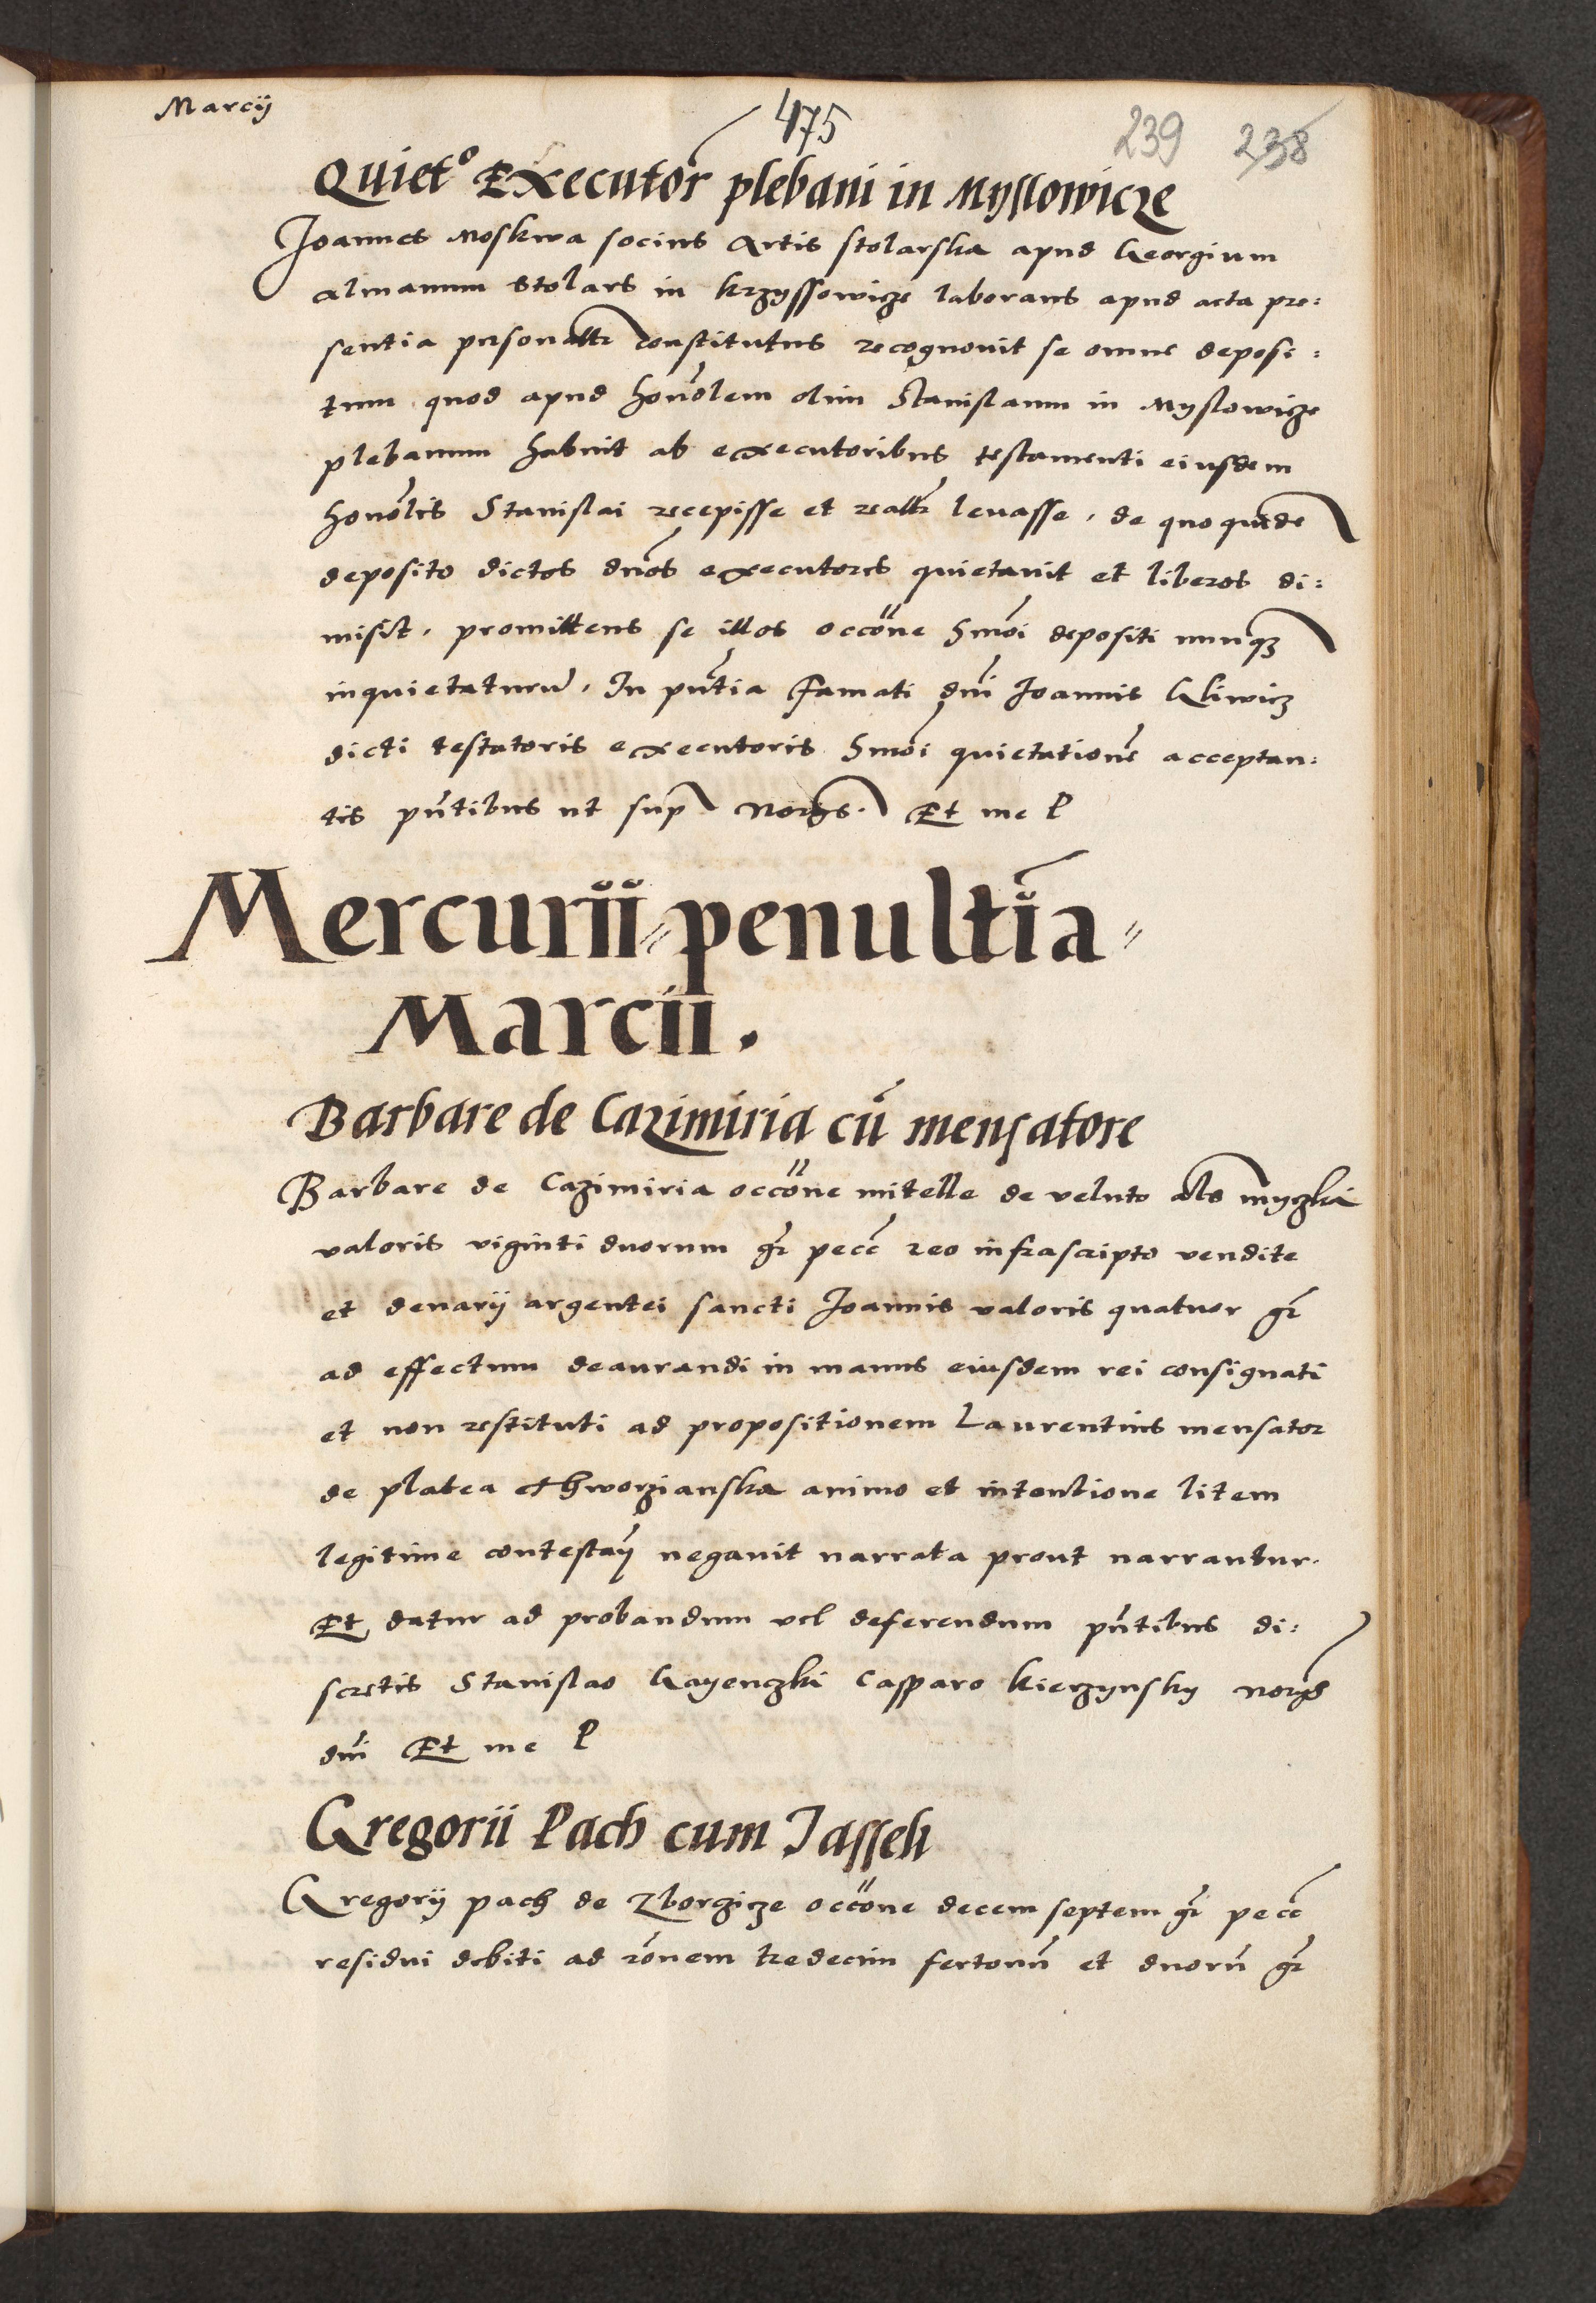 Marcij
475
239 238
Quiet° Executor plebani in Myslowicze
Joannes Moskwa socius artis stolarska apud Georgium
almanum stolars in krzyssowicze laborans apud acta pre:
sentia personalr constitutus recognovit se omne deposi:
tum quod apud honolem olim Stanislaum in Myslowicze
plebanum habuit ab executoribus testamenti eiusdem
honolis Stanislai recepisse et realr levasse, de quo quide
deposito dictos dnos executores quietavit et liberos di:
misit, promittens se illos occone hmoi depositi nunqz
inquietaturu, In pntia famati dni Joannis Gliwicz
dicti testatoris executoris hmoi quietatione acceptan:
tis pntibus ut sup Norijs. Et me P
Mercurii penultia
Marcii.
Barbare de Cazimiria cu mensatore
Barbare de Cazimiria occone mitelle de veluto als myczki
valoris viginti duorum gr pecc reo infrascripto vendite
et denarij argentei sancti Joannis valoris quatuor gr
ad effectum deaurandi in manus eiusdem rei consignati
et non restituti ad propositionem Laurentius mensator
de platea Thworzianska animo et intentione litem
legitime contestanj negavit narrata prout narrantur.
Et datur ad probandum vel deferendum pntibus di:
scretis Stanislao Gayenczki Casparo kierzynsky norijs
dni Et me P
Gregorii Pach cum Jassek
Gregorij pach de Zborczicze occone decem septem gr pecc
residui debiti ad ronem tredecim fertonu et duoru gr